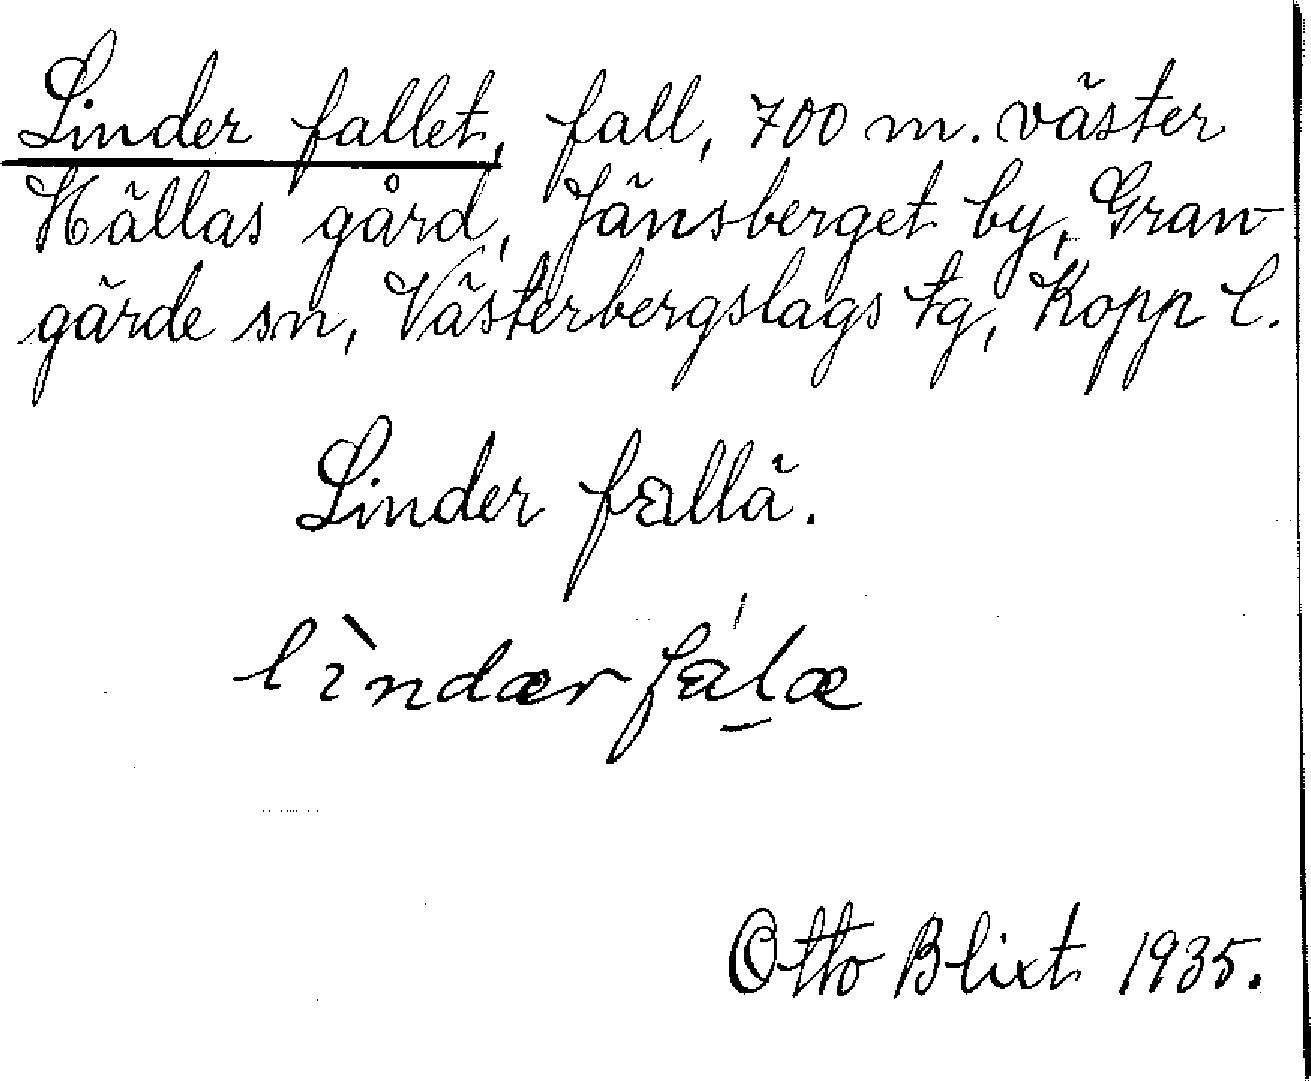 Linder fallet, fall, 700 m. väster
Hällas gård, Jänsberget by, Gran-
gärde sn, Västerbergslags tg, Kopp l.
Linder fallä.
lìndær falæ
Otto Blixt 1935.